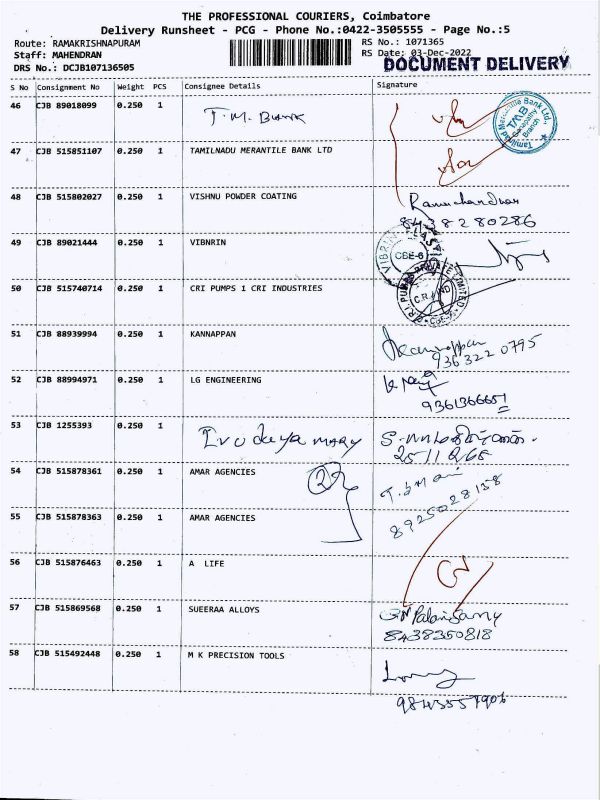 THE PROFESSIONAL COURIERS, Coimbatore
Delivery Runsheet - PCG - Phone No.:0422-3505555 - Page No.:5
Route: RAMAKRISHNAPURAM RS No.: 1071365
Staff: MAHENDRAN RS Date: 03-Dec-2022
DRS No.: DCJB107136505 DOCUMENT DELIVERY
S No Consignment No Weight PCS Consignee Details Signature
46 CJB 89018099 0.250 1 T.M. Bank
Tamilnad Mercantile Bank Ltd.
TMB
Ganapathy
Branch
47 CJB 515851107 0.250 1 TAMILNADU MERANTILE BANK LTD
48 CJB 515802027 0.250 1 VISHNU POWDER COATING Ramachandran
8438280286
49 CJB 89021444 0.250 1 VIBNRIN
CBE-6
50 CJB 515740714 0.250 1 CRI PUMPS 1 CRI INDUSTRIES
C.R.I. PUMPS PRIVATE LIMITED
51 CJB 88939994 0.250 1 KANNAPPAN Kannappan
936322 0795
52 CJB 88994971 0.250 1 LG ENGINEERING
9361366651
53 CJB 1255393 0.250 1 Irudaya MARY
54 CJB 515878361 0.250 1 AMAR AGENCIES T. Mani
8925028158
55 CJB 515878363 0.250 1 AMAR AGENCIES
56 CJB 515876463 0.250 1 A LIFE
57 CJB 515869568 0.250 1 SUEERAA ALLOYS Palanisamy
8438350818
58 CJB 515492448 0.250 1 M K PRECISION TOOLS